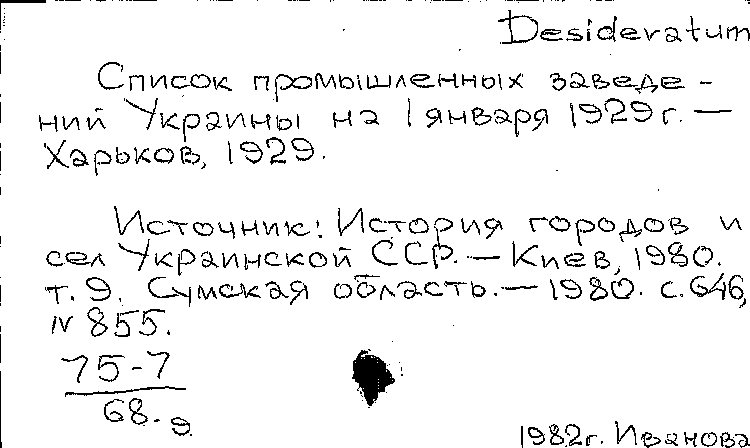 Desideratum
Список промышленных заведе-
ний Украины на 1 января 1929 г. —
Харьков, 1929.
Источник: История городов и
сел Украинской ССР. — Киев, 1980.
т. 9. Сумская область. — 1980. с. 646,
N 855.
75-7
68. 9.
1982 г. Иванова